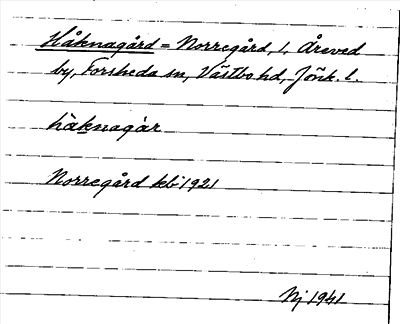 Håknagård = Norregård, i, Åreved
by, Forsheda sn, Västbo hd, Jönk. l.
hàknagàr
Norregård kb 1921
Nj 1941